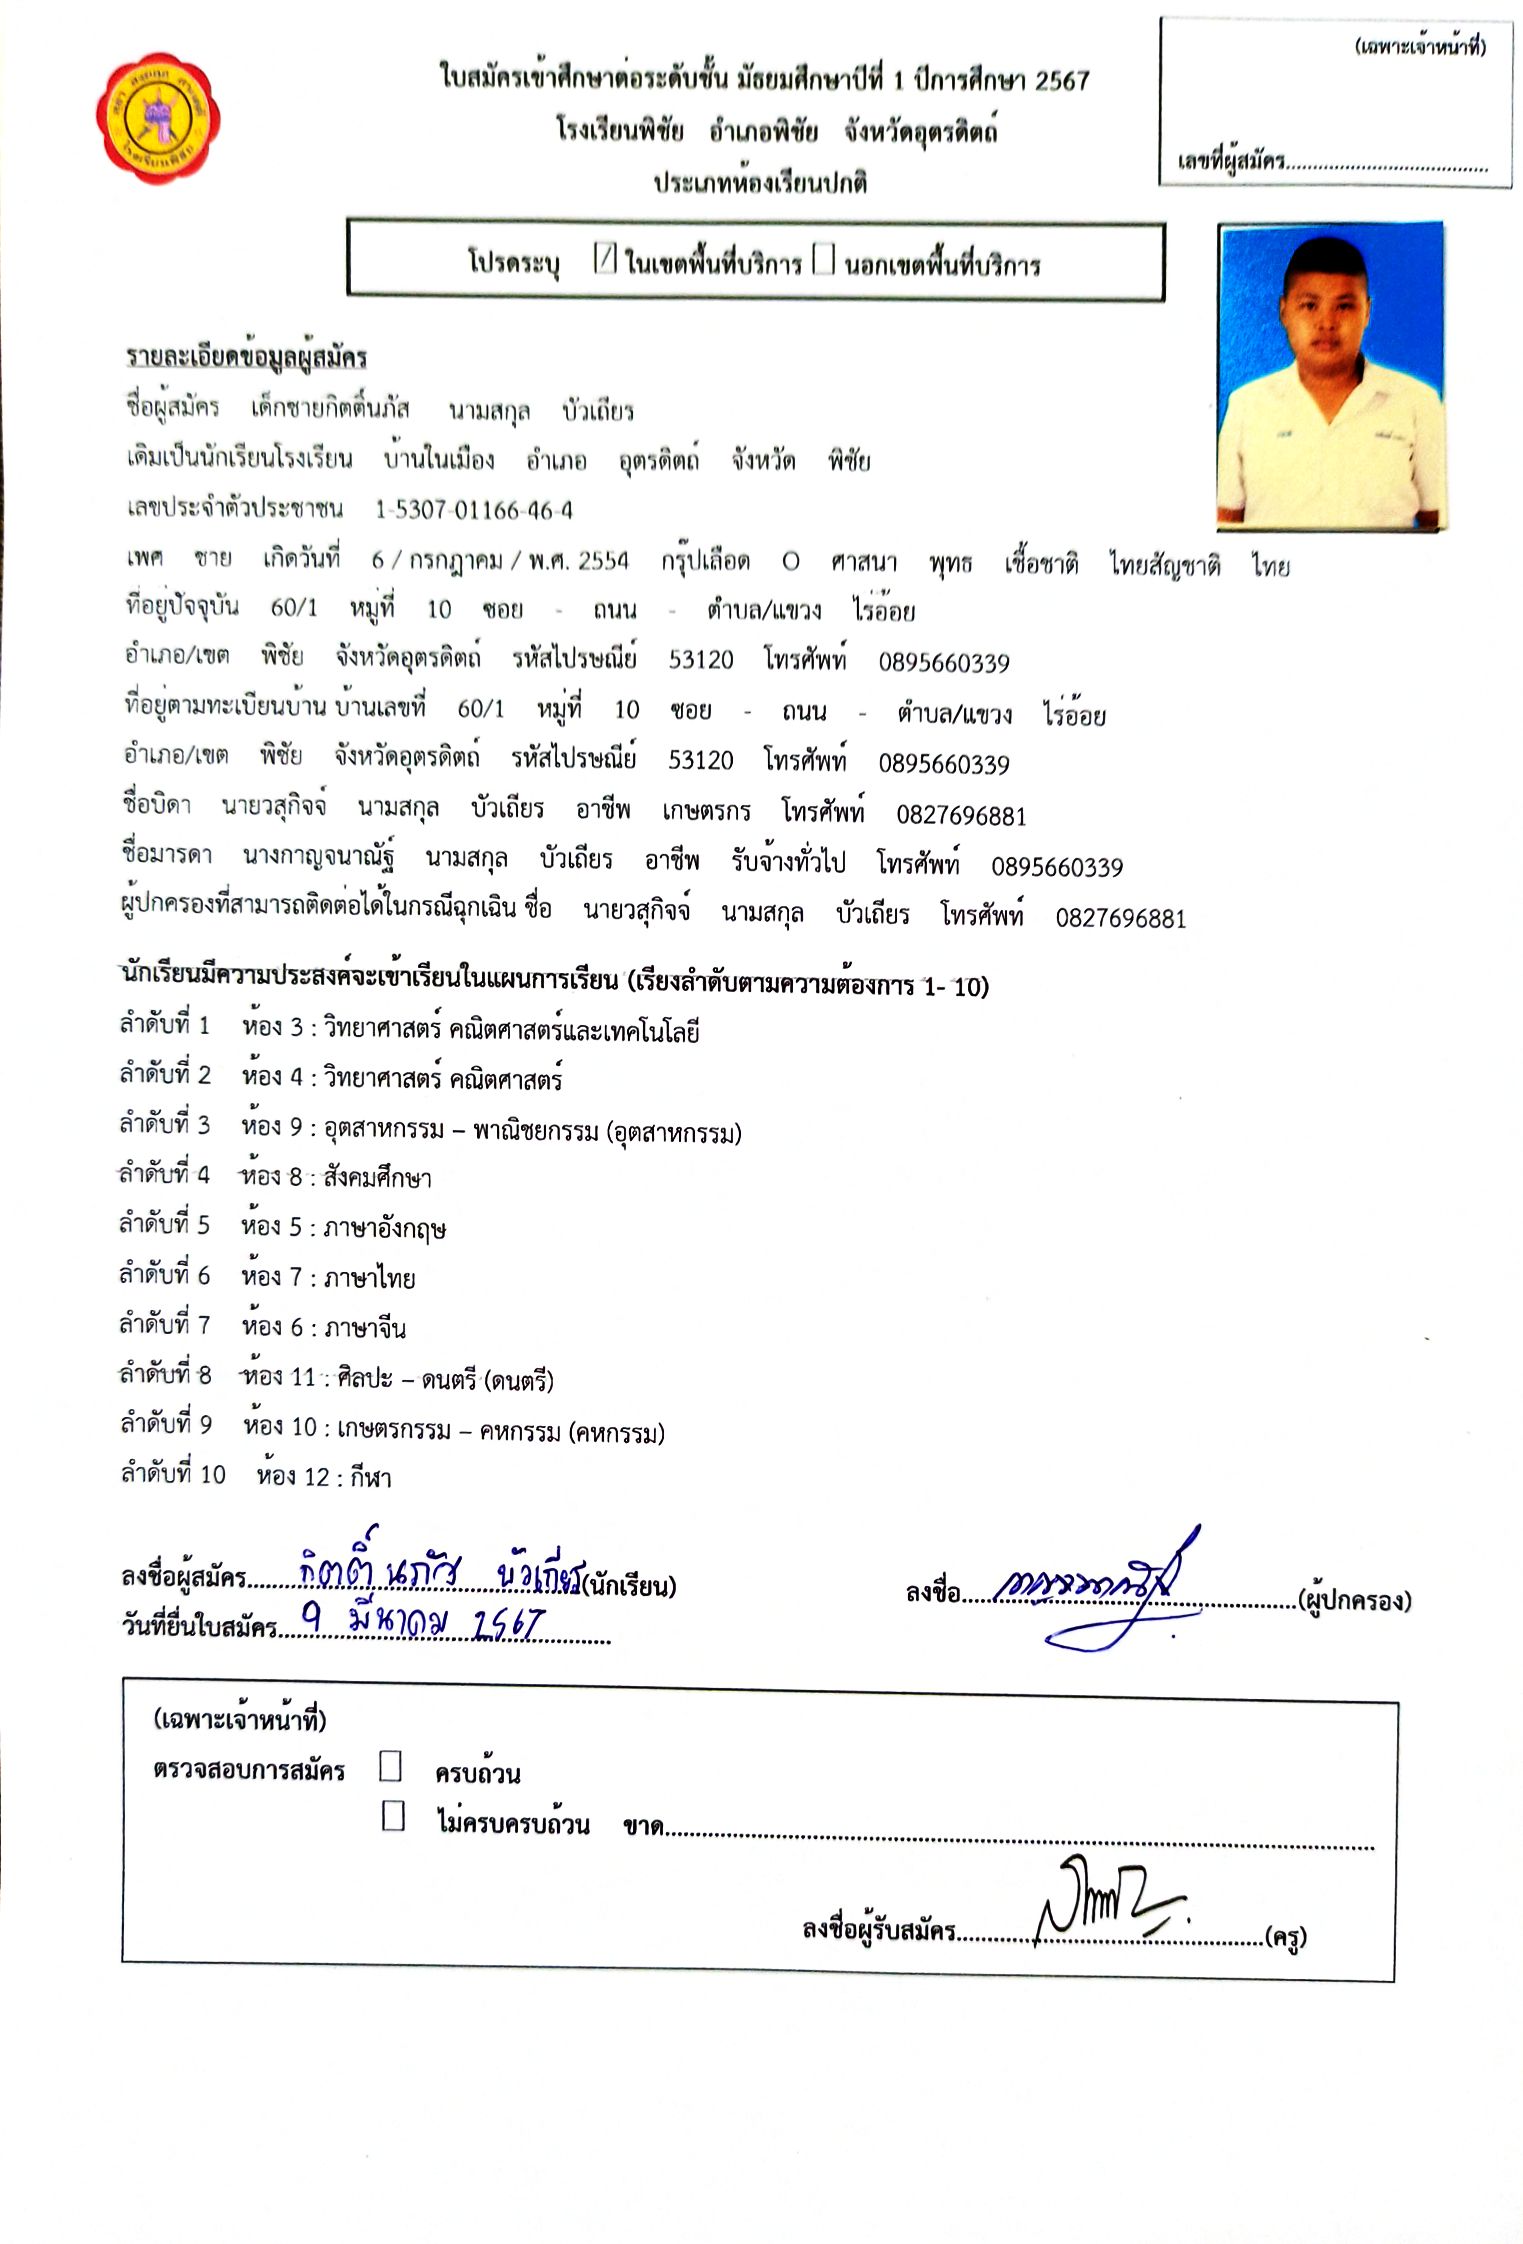 (เฉพาะเจ้าหน้าที่)
ใบสมัครเข้าศึกษาต่อระดับชั้น มัธยมศึกษาปีที่ 1 ปีการศึกษา 2567
โรงเรียนพิชัย อำเภอพิชัย จังหวัดอุตรดิตถ์
เลขที่ผู้สมัคร.......................................
ประเภทห้องเรียนปกติ
โรงเรียนพิชัย
โปรดระบุ ☑ ในเขตพื้นที่บริการ ☐ นอกเขตพื้นที่บริการ
รายละเอียดข้อมูลผู้สมัคร
ชื่อผู้สมัคร เด็กชายกิตติ์นภัส นามสกุล บัวเถียร
เดิมเป็นนักเรียนโรงเรียน บ้านในเมือง อำเภอ อุตรดิตถ์ จังหวัด พิชัย
เลขประจำตัวประชาชน 1-5307-01166-46-4
เพศ ชาย เกิดวันที่ 6 / กรกฎาคม / พ.ศ. 2554 กรุ๊ปเลือด O ศาสนา พุทธ เชื้อชาติ ไทยสัญชาติ ไทย
ที่อยู่ปัจจุบัน 60/1 หมู่ที่ 10 ซอย - ถนน - ตำบล/แขวง ไร่อ้อย
อำเภอ/เขต พิชัย จังหวัดอุตรดิตถ์ รหัสไปรษณีย์ 53120 โทรศัพท์ 0895660339
ที่อยู่ตามทะเบียนบ้าน บ้านเลขที่ 60/1 หมู่ที่ 10 ซอย - ถนน - ตำบล/แขวง ไร่อ้อย
อำเภอ/เขต พิชัย จังหวัดอุตรดิตถ์ รหัสไปรษณีย์ 53120 โทรศัพท์ 0895660339
ชื่อบิดา นายวสุกิจจ์ นามสกุล บัวเถียร อาชีพ เกษตรกร โทรศัพท์ 0827696881
ชื่อมารดา นางกาญจนาณัฐ์ นามสกุล บัวเถียร อาชีพ รับจ้างทั่วไป โทรศัพท์ 0895660339
ผู้ปกครองที่สามารถติดต่อได้ในกรณีฉุกเฉิน ชื่อ นายวสุกิจจ์ นามสกุล บัวเถียร โทรศัพท์ 0827696881
นักเรียนมีความประสงค์จะเข้าเรียนในแผนการเรียน (เรียงลำดับตามความต้องการ 1- 10)
ลำดับที่ 1 ห้อง 3 : วิทยาศาสตร์ คณิตศาสตร์และเทคโนโลยี
ลำดับที่ 2 ห้อง 4 : วิทยาศาสตร์ คณิตศาสตร์
ลำดับที่ 3 ห้อง 9 : อุตสาหกรรม – พาณิชยกรรม (อุตสาหกรรม)
ลำดับที่ 4 ห้อง 8 : สังคมศึกษา
ลำดับที่ 5 ห้อง 5 : ภาษาอังกฤษ
ลำดับที่ 6 ห้อง 7 : ภาษาไทย
ลำดับที่ 7 ห้อง 6 : ภาษาจีน
ลำดับที่ 8 ห้อง 11 : ศิลปะ – ดนตรี (ดนตรี)
ลำดับที่ 9 ห้อง 10 : เกษตรกรรม – คหกรรม (คหกรรม)
ลำดับที่ 10 ห้อง 12 : กีฬา
ลงชื่อผู้สมัคร.....กิตติ์นภัส บัวเถียร(นักเรียน) ลงชื่อ..........(ผู้ปกครอง)
วันที่ยื่นใบสมัคร.....9 มีนาคม 2567.....
(เฉพาะเจ้าหน้าที่)
ตรวจสอบการสมัคร ☐ ครบถ้วน
☐ ไม่ครบครบถ้วน ขาด..............................
ลงชื่อผู้รับสมัคร..............................(ครู)